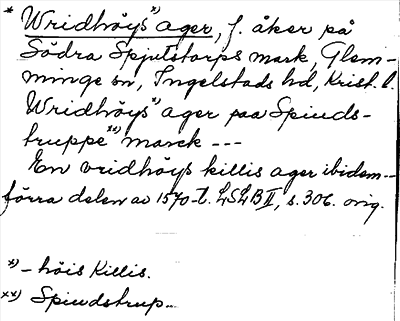 * Wridhöys*) ager, f. åker på
Södra Spjutstorps mark, Glem-
minge sn, Ingelstads hd, Krist. l.
Wridhöys ager paa Spiuds-
truppe**) marck ---
En vridhöys killis ager ibidem --
förra delen av 1570-t. LSLB II, s. 306. orig.
*) – höis Killis.
**) Spiudstrup..